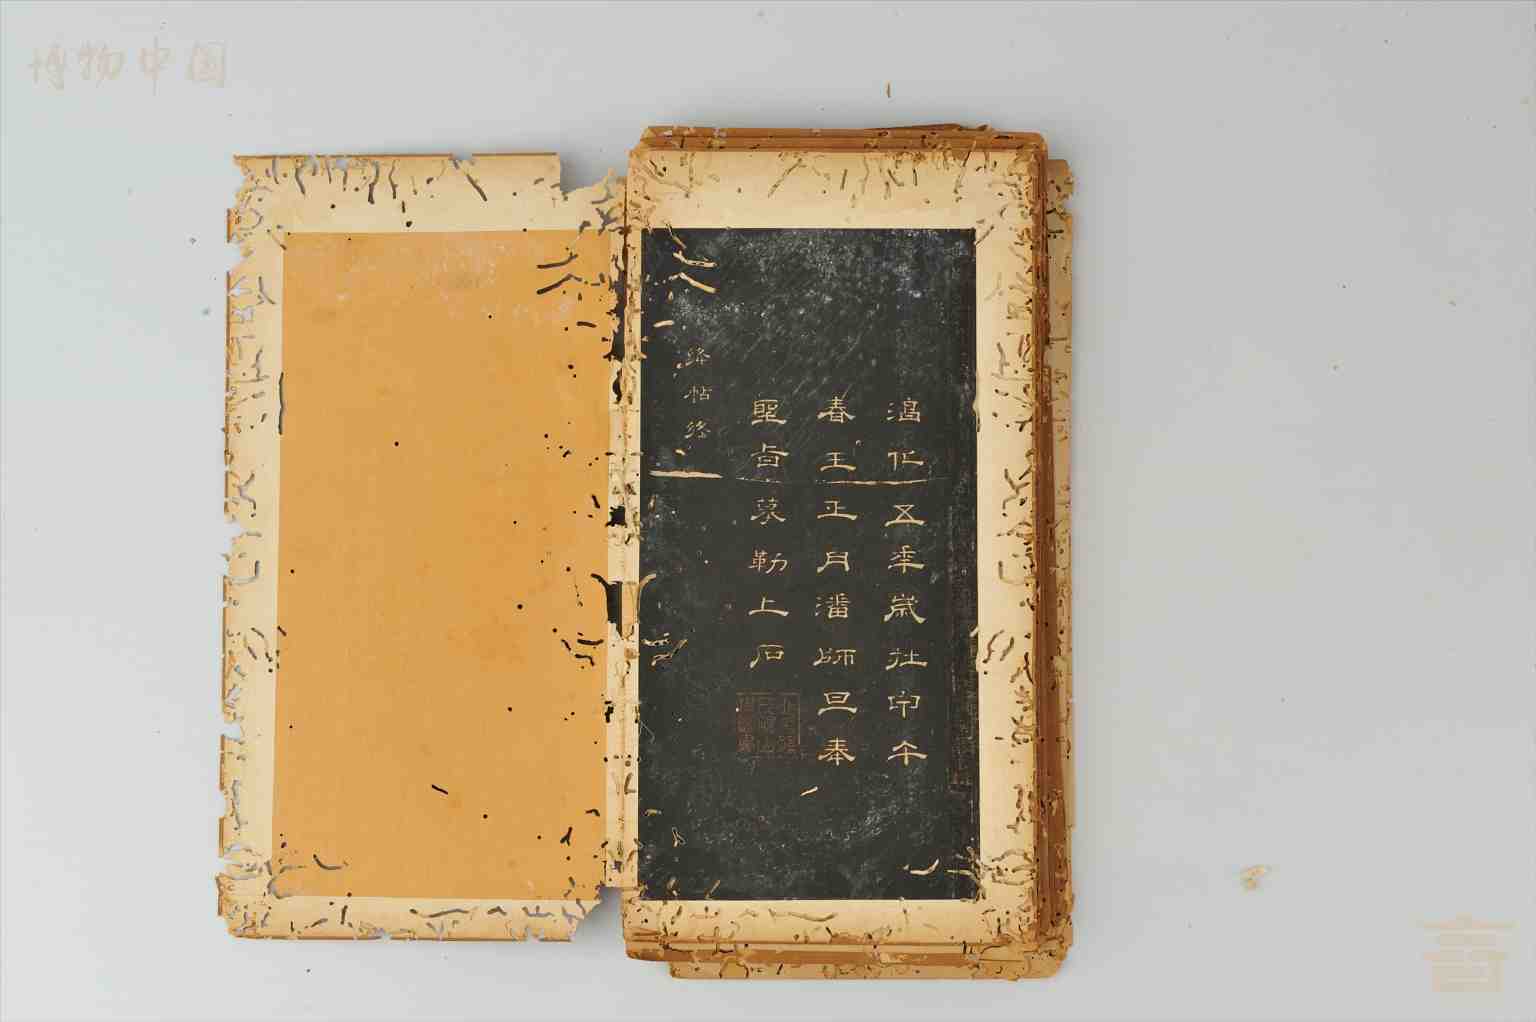 淄化五年歲在甲午
春王正月潘師旦奉
聖旨摹勒上石
絳帖終
博物中国